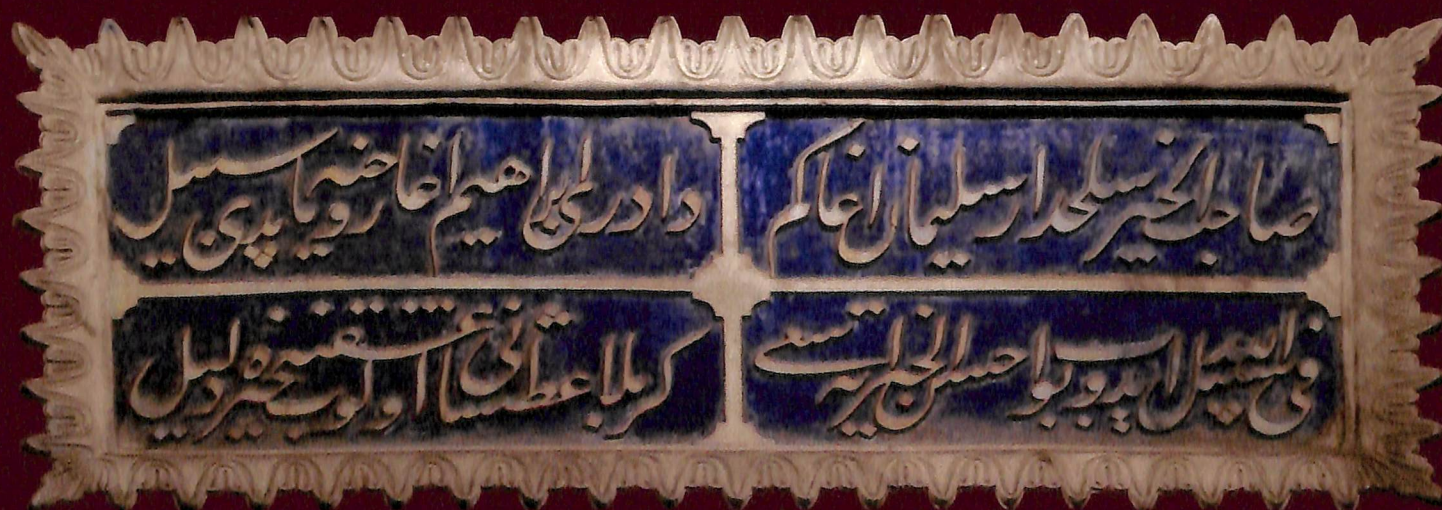 صاحب الخير سلحدار سليمان اغا كم
دادرى ابراهيم اغا روحنه ياپدى سبيل
فى سبيل الله ايدوب بو احسن الخيراته سعى
كربلا عطشانى عشقنه اولوب خيره دليل